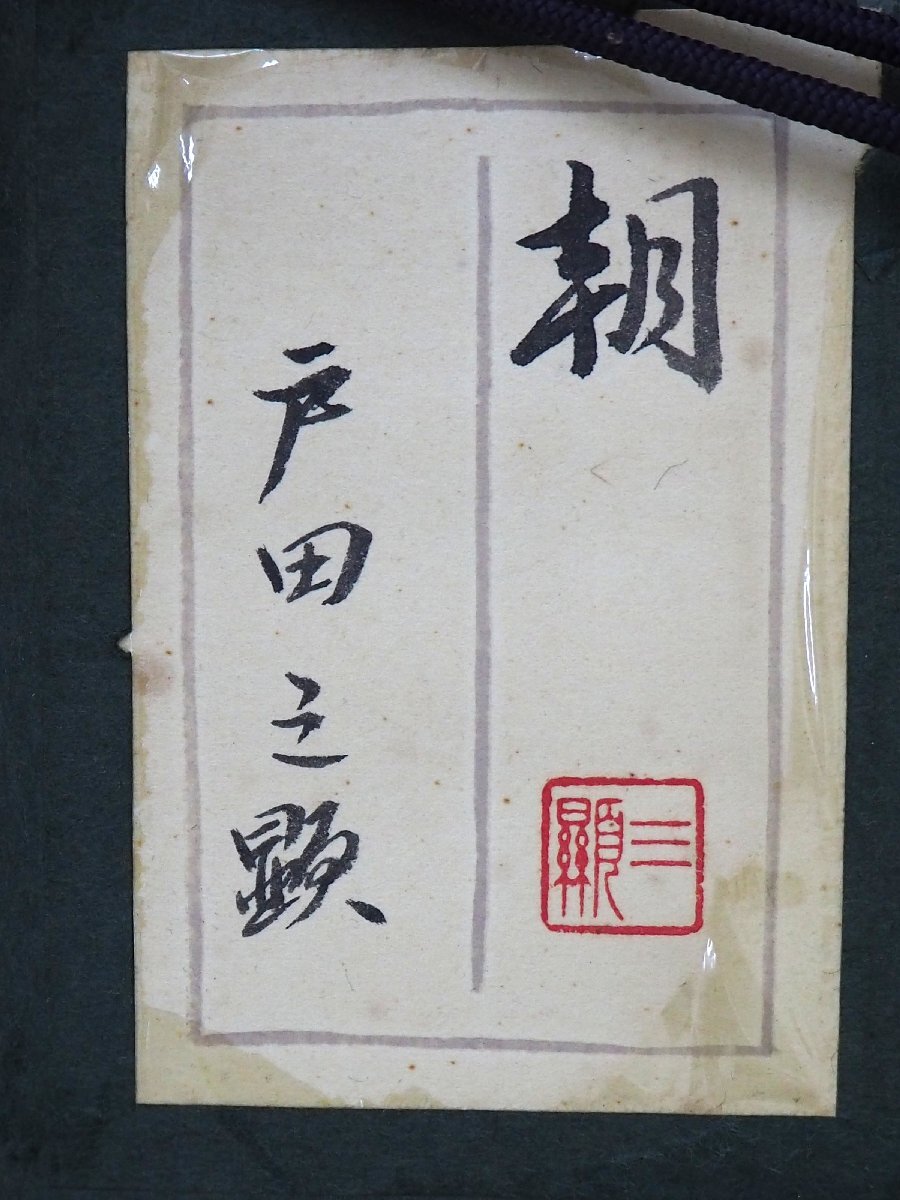 朝
戸田三顕
三顯